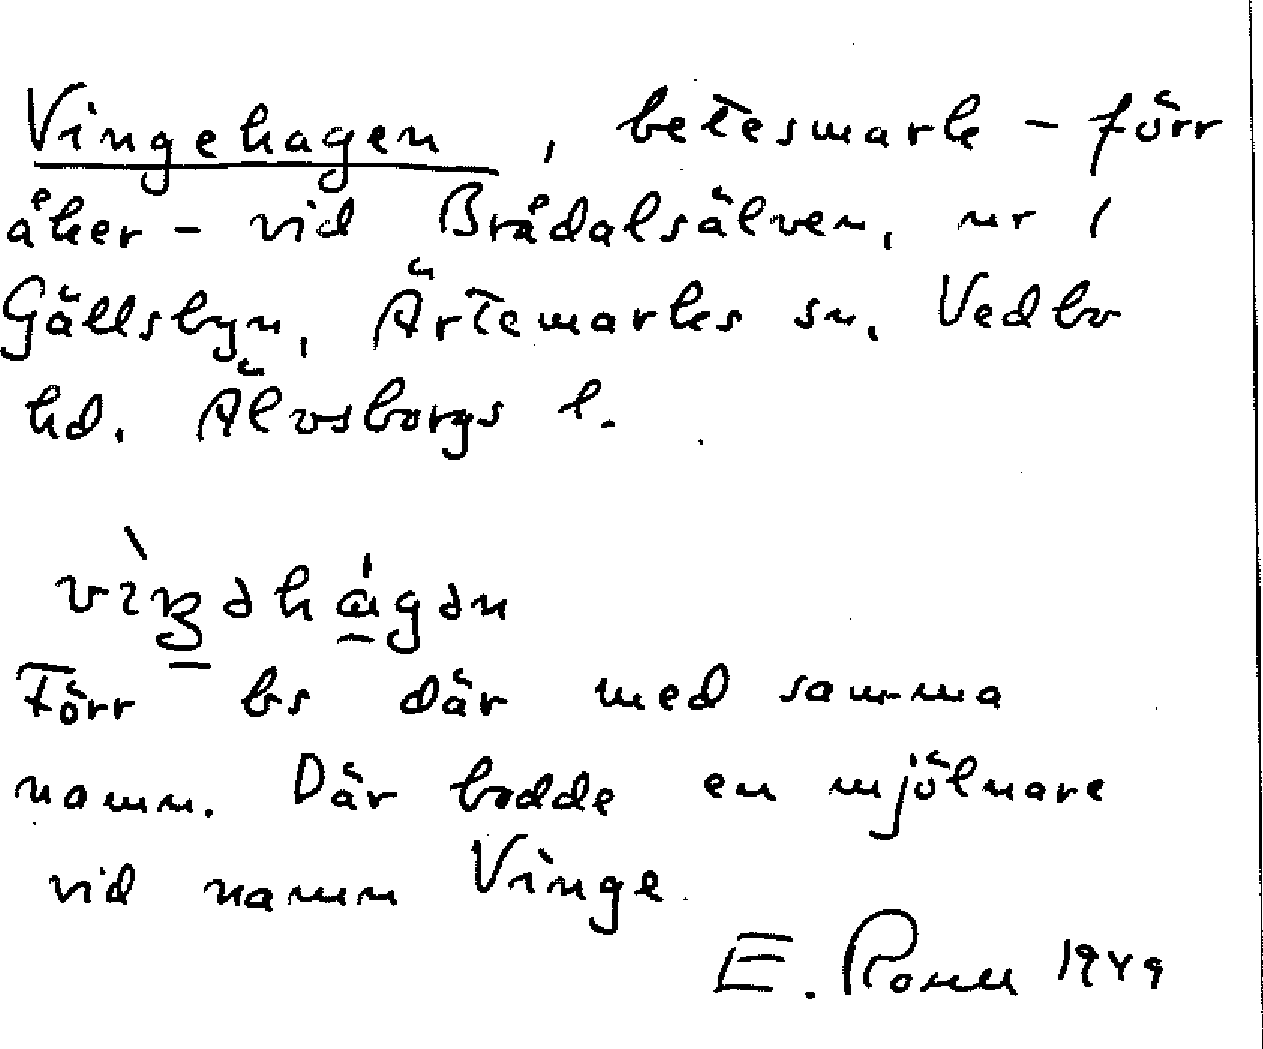 Vingehagen, betesmark - förr
åker - vid Brådalsälven, nr 1
Gällsbyn, Ärtemarks sn. Vedbo
hd. Älvsborgs l.
Förr bs där med samma
namn. Där bodde en mjölnare
vid namn Vinge
E. 1949